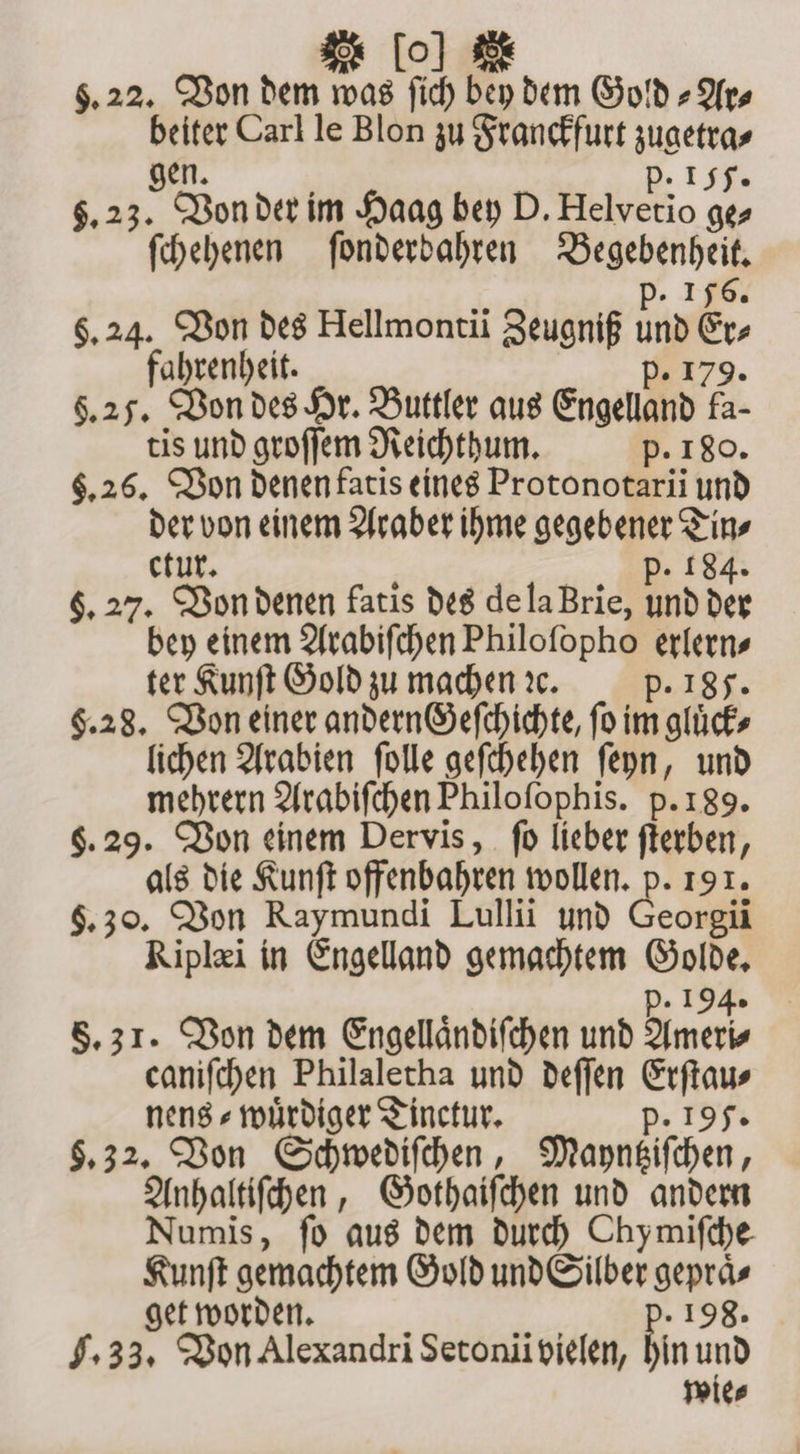 ❁ [o] ❁
§. 22. Von dem was ſich bey dem Gold⸗Ar⸗
beiter Carl le Blon zu Franckfurt zugetra⸗
gen. p. 155.
§. 23. Von der im Haag bey D. Helvetio ge⸗
ſchehenen ſonderbahren Begebenheit.
p. 156.
§. 24. Von des Hellmontii Zeugniß und Er⸗
fahrenheit. p. 179.
§. 25. Von des Hr. Buttler aus Engelland fa-
tis und groſſem Reichthum. p. 180.
§. 26. Von denen fatis eines Protonotarii und
der von einem Araber ihme gegebener Tin⸗
ctur. p. 184.
§. 27. Von denen fatis des de la Brie, und der
bey einem Arabiſchen Philoſopho erlern⸗
ter Kunſt Gold zu machen ꝛc. p. 185.
§. 28. Von einer andern Geſchichte, ſo im gluͤck⸗
lichen Arabien ſolle geſchehen ſeyn, und
mehrern Arabiſchen Philoſophis. p. 189.
§. 29. Von einem Dervis, ſo lieber ſterben,
als die Kunſt offenbahren wollen. p. 191.
§. 30. Von Raymundi Lullii und Georgii
Riplæi in Engelland gemachtem Golde.
p. 194.
§. 31. Von dem Engellaͤndiſchen und Ameri⸗
caniſchen Philaletha und deſſen Erſtau⸗
nens⸗wuͤrdiger Tinctur. p. 195.
§. 32. Von Schwediſchen, Mayntziſchen,
Anhaltiſchen, Gothaiſchen und andern
Numis, ſo aus dem durch Chymiſche
Kunſt gemachtem Gold und Silber gepraͤ⸗
get worden. p. 198.
§. 33. Von Alexandri Setonii vielen, hin und
wie⸗